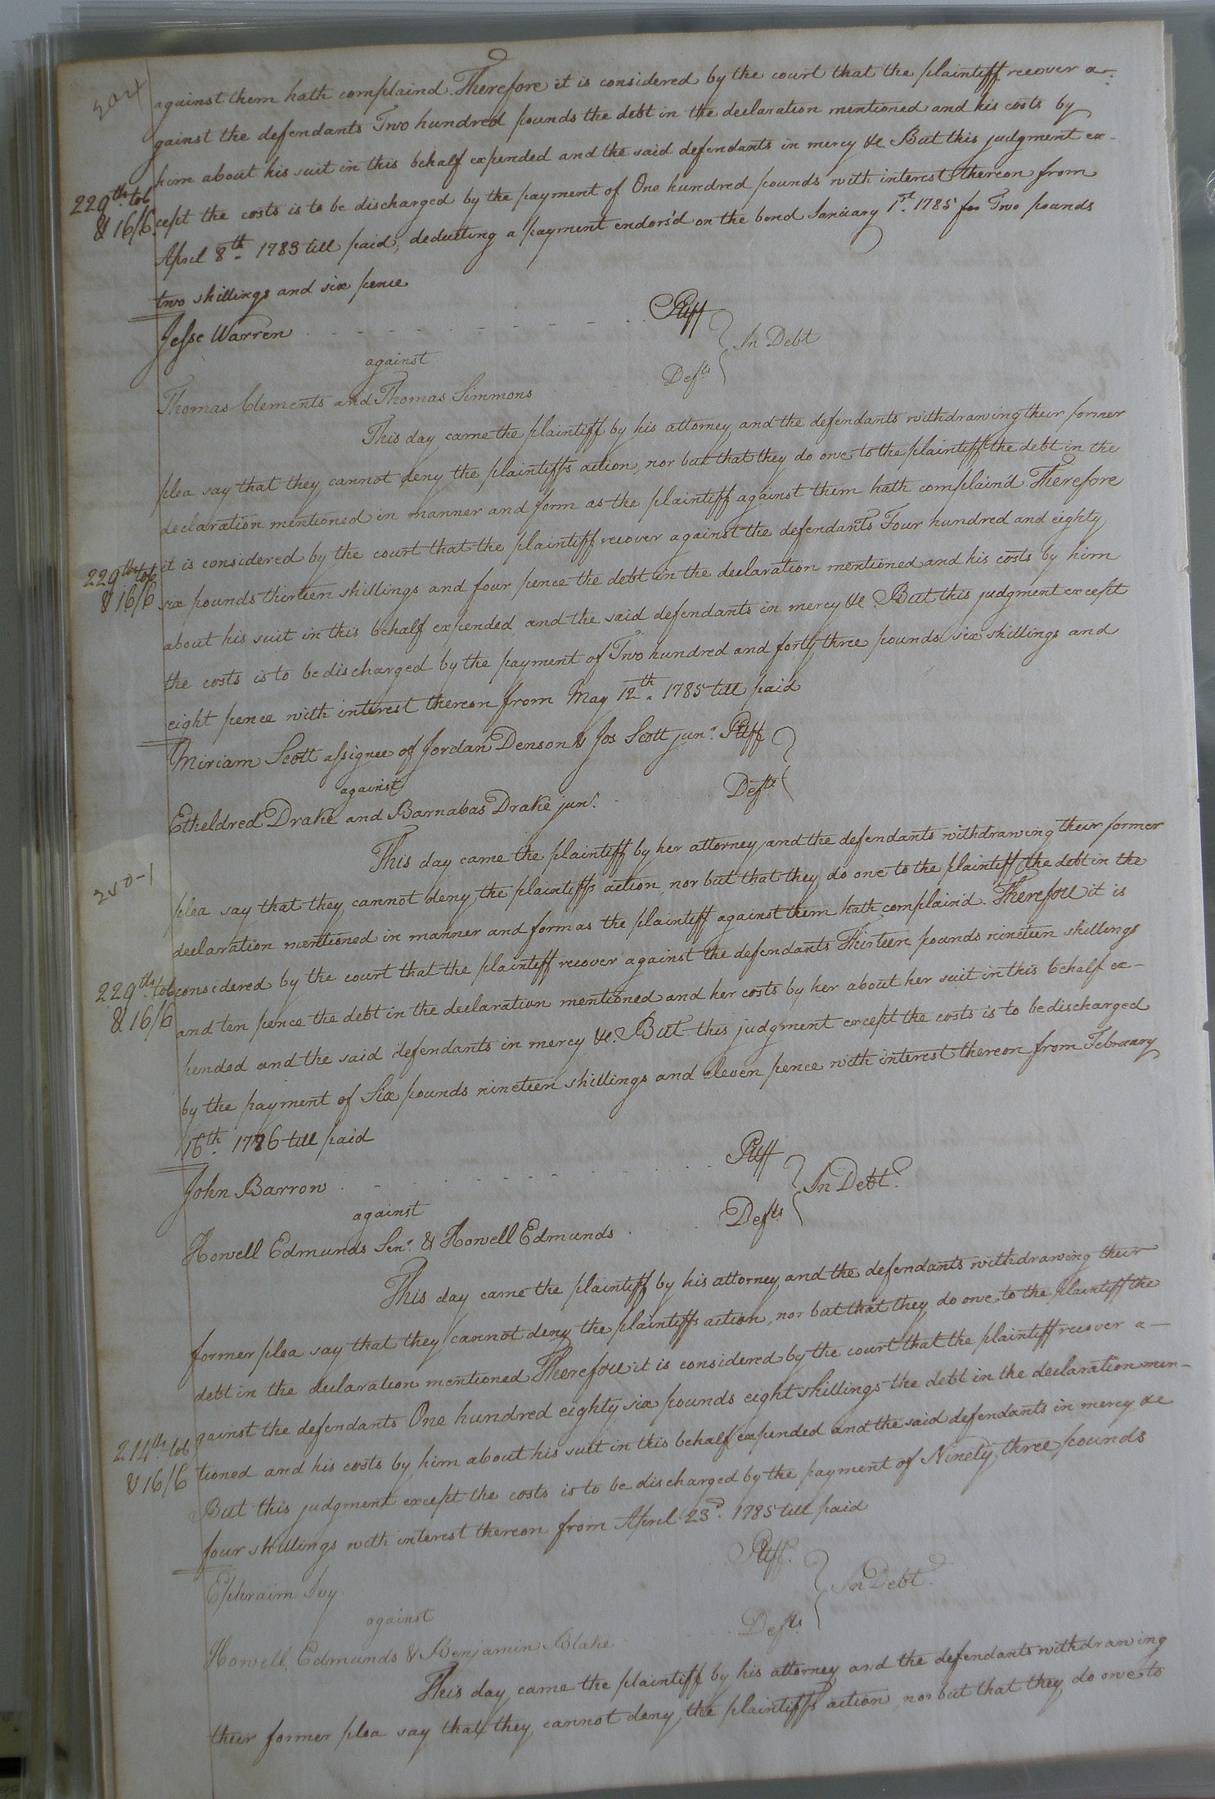 204
against them hath complaind Therefore it is considered by the court that the plaintiff recover a-
gainst the defendants Two hundred pounds the debt in the declaration mentioned and his costs by
him about his suit in this behalf expended and the said defendants in mercy &c But this judgment ex-
229th tob
& 16/6
cept the costs is to be discharged by the payment of One hundred pounds with interest thereon from
April 8th 1783 till paid, deducting a payment endors'd on the bond January 1st 1785 for Two pounds
two shillings and six pence
Jesse Warren Pltff
against In Debt
Thomas Clements and Thomas Simmons Defts
This day came the plaintiff by his attorney and the defendants withdrawing their former
plea say that they cannot deny the plaintiffs action, nor but that they do owe to the plaintiff the debt in the
declaration mentioned in manner and form as the plaintiff against them hath complain'd Therefore
it is considered by the court that the plaintiff recover against the defendants Four hundred and eighty
229th tob
& 16/6
six pounds thirteen shillings and four pence the debt in the declaration mentioned and his costs by him
about his suit in this behalf expended and the said defendants in mercy &c But this judgment except
the costs is to be discharged by the payment of Two hundred and forty three pounds six shillings and
eight pence with interest thereon from May 12th 1785 till paid
Miriam Scott assignee of Jordan Denson & Jos Scott junr. Pltff
against
Etheldred Drake and Barnabas Drake junr. Defts
This day came the plaintiff by her attorney and the defendants withdrawing their former
plea say that they cannot deny the plaintiffs action nor but that they do owe to the plaintiff the debt in the
declaration mentioned in manner and form as the plaintiff against them hath complain'd. Therefore it is
229th tob
& 16/6
considered by the court that the plaintiff recover against the defendants Thirteen pounds nineteen shillings
and ten pence the debt in the declaration mentioned and her costs by her about her suit in this behalf ex-
pended and the said defendants in mercy &c. But this judgment except the costs is to be discharged
by the payment of Six pounds nineteen shillings and eleven pence with interest thereon from February
16th 1776 till paid
John Barron Pltff
against In Debt
Howell Edmunds Senr. & Howell Edmunds Defts
This day came the plaintiff by his attorney and the defendants withdrawing their
former plea say that they cannot deny the plaintiffs action, nor but that they do owe to the plaintiff the
debt in the declaration mentioned Therefore it is considered by the court that the plaintiff recover a-
gainst the defendants One hundred eighty six pounds eight shillings the debt in the declaration men-
214th tob
& 16/6
tioned and his costs by him about his suit in this behalf expended and the said defendants in mercy &c
But this judgment except the costs is to be discharged by the payment of Ninety three pounds
four shillings with interest thereon from April 23d. 1785 till paid
Ephraim Ivy Pltff.
against In Debt
Howell Edmunds & Benjamin Blake Defts
This day came the plaintiff by his attorney and the defendants withdrawing
their former plea say that they cannot deny the plaintiffs action nor but that they do owe to